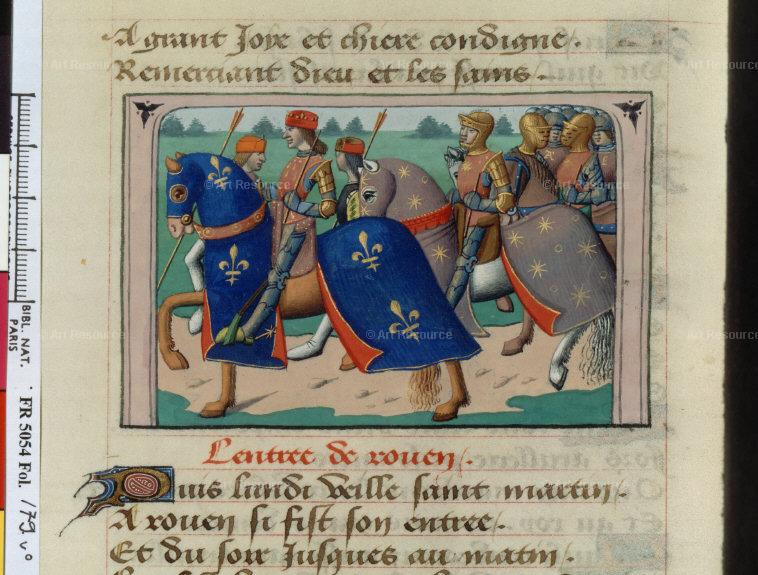 A grant Joye et chiere condigne.
Remerciant dieu et les sains.
© Art Resource
L'entree de rouen
Puis lundi veille saint martin.
A rouen si fist son entree.
Et du soir Jusques au matin
BIBL. NAT.
PARIS
FR 5054 Fol. 179 v°